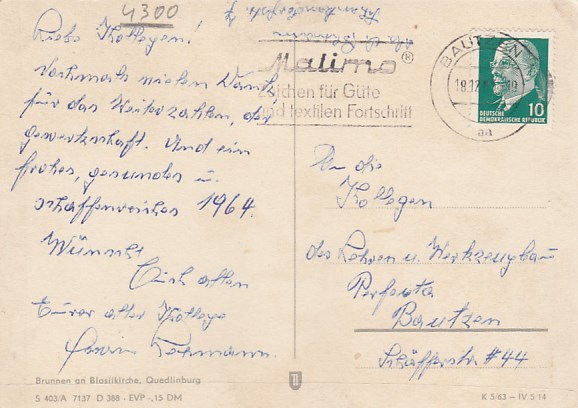 4300
Liebe Kollegen!
Nochmals vielen Dank
für das Weiterzahlen, der
gewerkschaft. Und ein
frohes, gesundes u.
schaffensreiches 1964.
Wünscht
Euch allen
Euer alter Kollege
Erwin Lehmann.
Malimo®
Zeichen für Güte
und textilen Fortschritt
BAUTZEN
18.12.
aa
10
DEUTSCHE
DEMOKRATISCHE REPUBLIK
An die
Kollegen
des Lehren u. Werkzeugbau
Perfecta
Bautzen
Schäfferstr #44
Brunnen an Blasiikirche, Quedlinburg
S 403/A 7137 D 368 - EVP -,15 DM
K 5/63 - IV 5 14